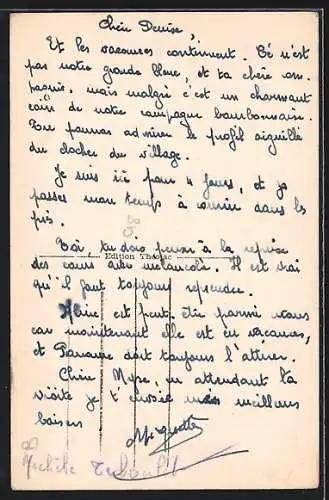 Chère Denise,
Et les vacances continuent. Ce n'est
pas notre grande bleue, et ta chère com-
pagnie, mais malgré c'est un charmant
coin de notre campagne bourbonnaise.
Tu pourras admirer le profil aiguille
du clocher du village.
Je suis ici pour 4 jours, et je
passes mon temps à courir dans les
prés.
Toi, tu dois penser à la reprise
Edition Théojac
des cours avec mélancolie. Il est vrai
qu'il faut toujours reprendre.
Hélène est peut-être parmi vous
car maintenant elle est en vacances,
et doit toujours l'attirer.
Chère en attendant ta
visite je t'envoie mes meilleurs
baisers